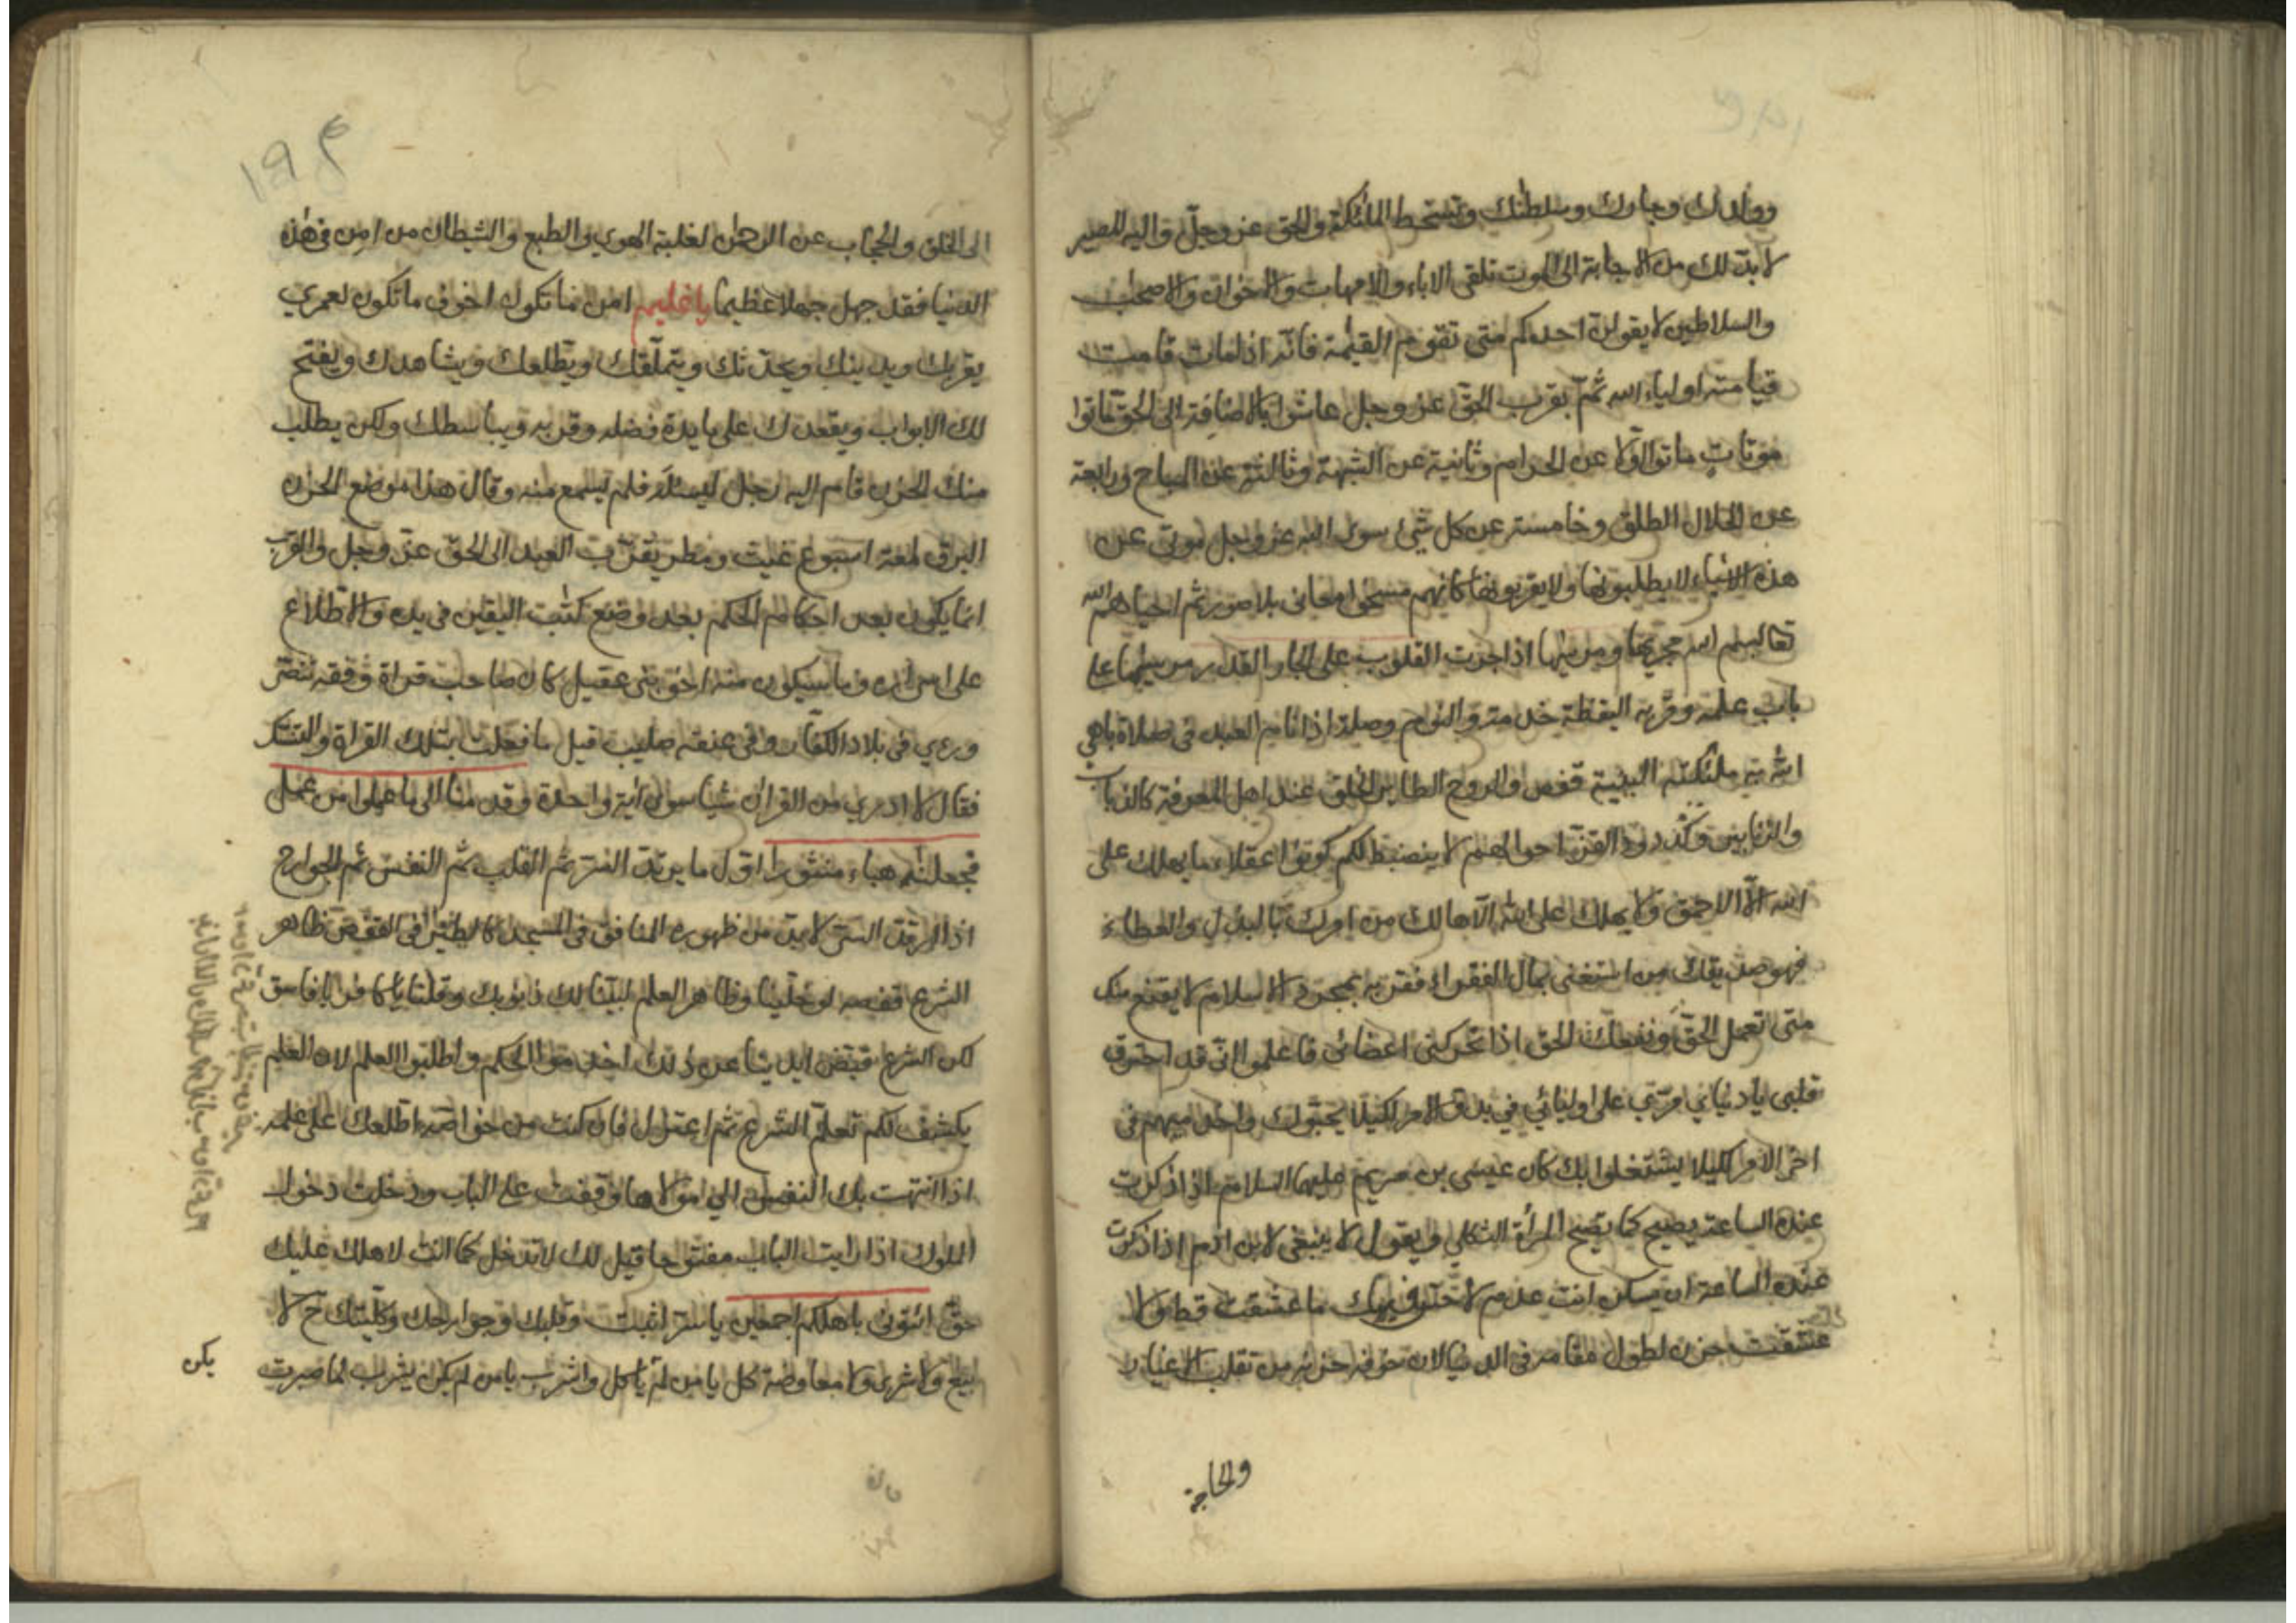 وولدك وجارك وسلطانك وتسخط الملئكة والحق عز وجل واليه المصير
لا بد لك من الاجابة الى الموت تلقى الاباء والامهات والاخوان والاصحاب
والسلاطين لا يقولن احدكم متى تقوم القيٰمة فانه اذا مات قامت
قيامته اولياء الله ثم بقرب الحق عز وجل عاشوا بالاضافة الى الحق ماتوا
موتات ماتوا اولا عن الحرام وثانية عن الشبهة وثالثة عن المباح ورابعة
عن الحلال الطلق وخامسة عن كل شئ سوى الله عز وجل موتى عن
هذه الاشياء لا يطلبونها ولا يقربونها كانهم مسخوا معانى بلا صور ثم احياهم الله
تعالى بسم الله مجريها ومرسيها اذا جرت القلوب على بحار القدر مرسيها على
باب علمه وقربه اليقظة خدمة والنوم وصلة اذا نام العبد فى صلاة باهى
الله به ملئكته البنية قفص والروح الطاير الخلق عند اهل المعرفة كالذباب
والزنابير وكدود القز احوالهم لا ينضبط لكم كونوا عقلاء ما يهلك على
الله الا الاحمق ولا يهلك على الله الا هالك من امرك بالبذل والعطاء
فهو صديقك من استغنى بمال الفقراء فقربه بمجرد الاسلام لا يقنع منك
متى تعمل الحق ونفعك الحق اذا تحركت اعضائى فاعلموا انه قد احترق
قلبى يا دنياي مرى على اوليائي في بدو الامر لكيلا يحبوك واخدميهم فى
اخر الامر لكيلا يشتغلوا بك كان عيسى بن مريم عليهما السلام اذا ذكرت
عنده الساعة يصيح كما تصيح المرأة الثكلى ويقول لا ينبغى لابن ادم اذا ذكرت
عنده الساعة ان يسكن انت عدم لا حبيب ما عشقت قط ولا
عشقت حزن لطول مقامه فى الدنيا لان خوفه حزنه من تقلب الاغيار
والحاجة
١٩٤
الى الخلق والحجاب عن الرحمٰن لغلبة الهوى والطبع والشيطان من امن فى هٰذه
الدنيا فقد جهل جهلا عظيما يا غليم امن ما تكون اخوف ما تكون لعمري
يقربك ويدينك ويحدثك ويتملقك ويطلعك ويشاهدك ويفتح
لك الابواب ويقعدك على مايدة فضله وقربه ويباسطك ولكن يطلب
منك الحزن قام اليه رجل ليسئله فلم يسمع منه وقال هذا موضع الحزن
البرق لمعة اسبوع غيث ومطر يقرب العبد الى الحق عز وجل والقرب
انما يكون بعد احكام الحكم بعد وضع كتٰب اليقين فى يده والاطلاع
على اسراره وما سيكون منه اخو بنى عقيل كان صاحب قراة وفقه تنصر
ورءي فى بلاد الكفار وفى عنقه صليب قيل ما فعلت بتلك القراة والنسك
فقال لا ادري من القرآن شيأ سوى آية واحدة وقدمنا الى ما عملوا من عمل
فجعلنٰه هباء منثورا اول ما يرتد السر ثم القلب ثم النفس ثم الجوارح
اذا ارتد السر لا بد من ظهوره المنافق فى المسجد كالطير فى القفص ظاهر
الشرع قفصه لو خلينا وظاهر العلم لبينا لك ذنوبك وقلنا يا كافر يا فاسق
لكن الشرع قبض ايدينا عن ذلك اخدموا الحكم واطلبوا العلم لان العلم
يكشف لكم تعلم الشرع ثم اعتزل فان كنت من خواصه اطلعك على علمه
اذا انتهت بك النفس الى مولاها وقفت على الباب ودخلت دخول
الملوك اذا رايت الباب مفتوحا قيل لك لا تدخل كما انت لاهلك عليك
حق ائتونى باهلكم اجمعين يا سر اثبت وقلبك وجوارحك وكليتك ح لا
بيع ولا شرى ولا معاوضة كل يا من لم ياكل واشرب يا من لم يكن يشرب لما صبرت
يكن